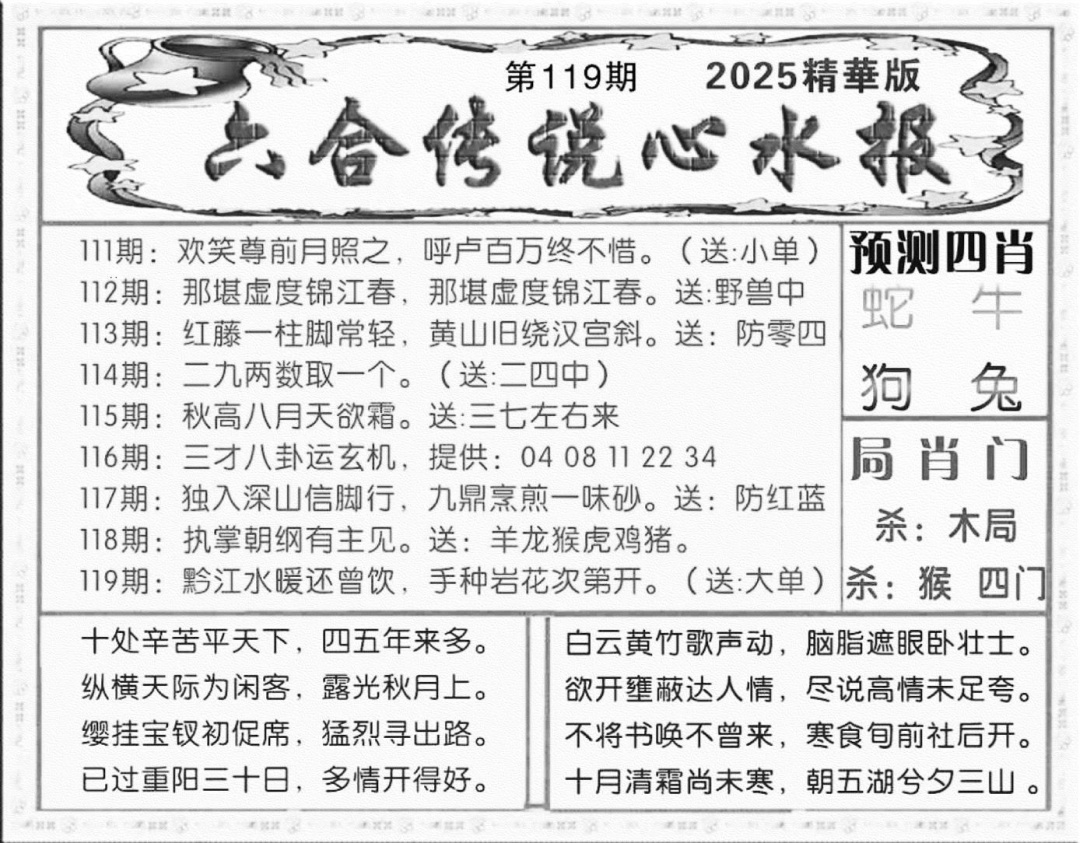 第119期 2025精華版
六合传说心水报
111期：欢笑尊前月照之，呼卢百万终不惜。（送:小单）
112期：那堪虚度锦江春，那堪虚度锦江春。送:野兽中
113期：红藤一柱脚常轻，黄山旧绕汉宫斜。送：防零四
114期：二九两数取一个。（送:二四中）
115期：秋高八月天欲霜。送:三七左右来
116期：三才八卦运玄机，提供：04 08 11 22 34
117期：独入深山信脚行，九鼎烹煎一味砂。送：防红蓝
118期：执掌朝纲有主见。送：羊龙猴虎鸡猪。
119期：黔江水暖还曾饮，手种岩花次第开。（送:大单）
预测四肖
蛇 牛
狗 兔
局肖门
杀：木局
杀：猴 四门
十处辛苦平天下，四五年来多。
纵横天际为闲客，露光秋月上。
缨挂宝钗初促席，猛烈寻出路。
已过重阳三十日，多情开得好。
白云黄竹歌声动，脑脂遮眼卧壮士。
欲开壅蔽达人情，尽说高情未足夸。
不将书唤不曾来，寒食旬前社后开。
十月清霜尚未寒，朝五湖兮夕三山。